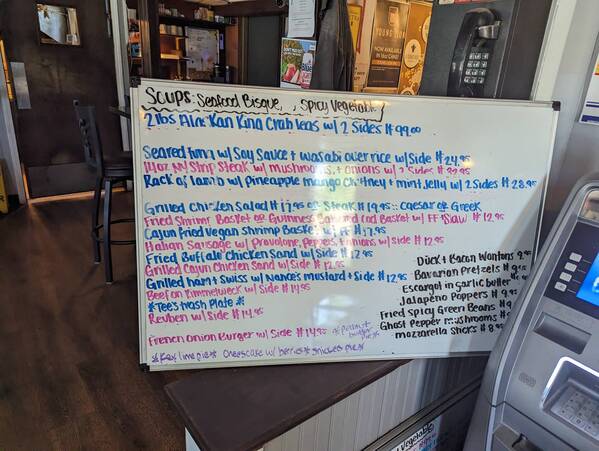 SOUPS: Seafood Bisque, , Spicy Vegetable
2 lbs Alaskan King Crab legs w/ 2 Sides # 99.00
Seared tuna w/ Soy Sauce + wasabi over rice w/ Side # 24.95
14oz NY Strip Steak w/ mushrooms + onions w/ 2 Sides # 32.95
Rack of Lamb w/ pineapple mango Chutney + mint Jelly w/ 2 Sides # 28.95
Grilled Chicken Salad # 17.95 or Steak # 19.95 :: Caesar or Greek
Fried Shrimp Basket or Guinness Battered Cod Basket w/ FF + Slaw # 12.95
Cajun fried vegan shrimp Basket w/ FF # 17.95
Italian Sausage w/ Provolone, Peppers, + onions w/ side # 12.95
Fried Buffalo Chicken Sand w/ Side # 12.95
Grilled Cajun Chicken Sand w/ Side # 12.95
Grilled ham + Swiss w/ Nance's mustard + Side # 12.95
Beef on Kimmelweck w/ Side # 14.95
*Tee's trash Plate *
Reuben w/ Side # 14.95
French Onion Burger w/ Side # 14.95
* Peanut butter pie *
* Key lime pie * Cheesecake w/ berries * snickers pie *
Duck + Bacon Wontons 9.95
Bavarian Pretzels # 9.95
Escargot in garlic butter
Jalapeno Poppers # 9
Fried spicy Green Beans #
Ghost Pepper mushrooms #
Mozzarella Sticks # 8.95
YOUNG
AVAILABLE
NOW
Vegetable